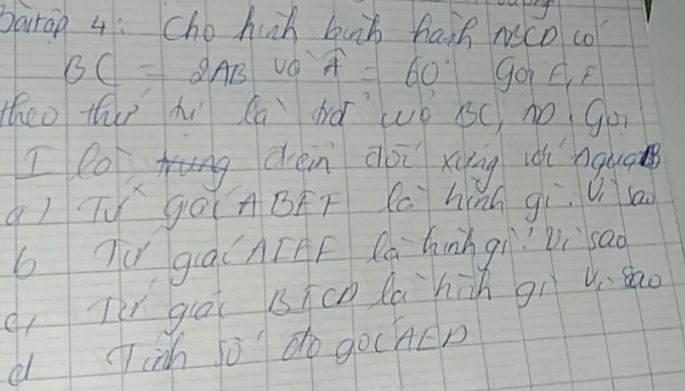 Bài tập 4: Cho hình bình hành ABCD có
BC = 2AB và  = 60° gọi E, F
theo thứ tự là của BC, AD. Gọi
I là điểm đối xứng với A qua B
a) Tứ giác ABEF là hình gì. Vì sao
b Tứ giác AIEF là hình gì? Vì sao
c, Tứ giác BICD là hình gì Vì sao
d Tính số đo góc AED